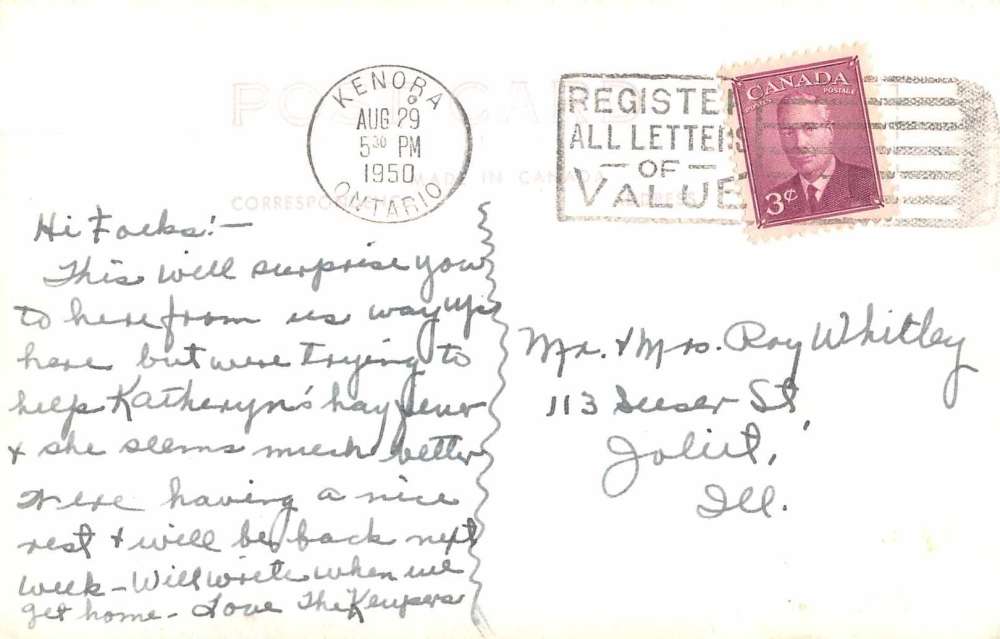 POST CARD
KENORA
AUG 29
5 30 PM
1950
ONTARIO
REGISTER
ALL LETTERS
OF
VALUE
CANADA
POSTES POSTAGE
3¢
MADE IN CANADA
CORRESPONDENCE
Hi Folks:—
This will surprise you
to here from us way up
here but were trying to
help Katheryn's hay fever
& she seems much better
were having a nice
rest & will be back next
week - Will write when we
get home - Love The Keupers
Mr. & Mrs. Roy Whitley
113 St
Joliet,
Ill.